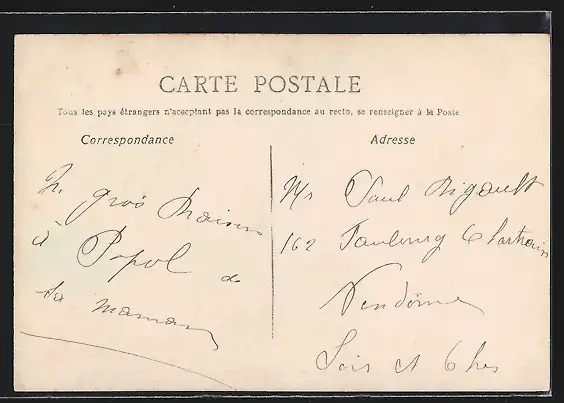 CARTE POSTALE
Tous les pays étrangers n'acceptant pas la correspondance au recto, se renseigner à la Poste
Correspondance
Adresse
gros
à Popol de
ta maman
Mr Paul Rigault
162 Faubourg Chartrain
Vendôme
Loir et Cher